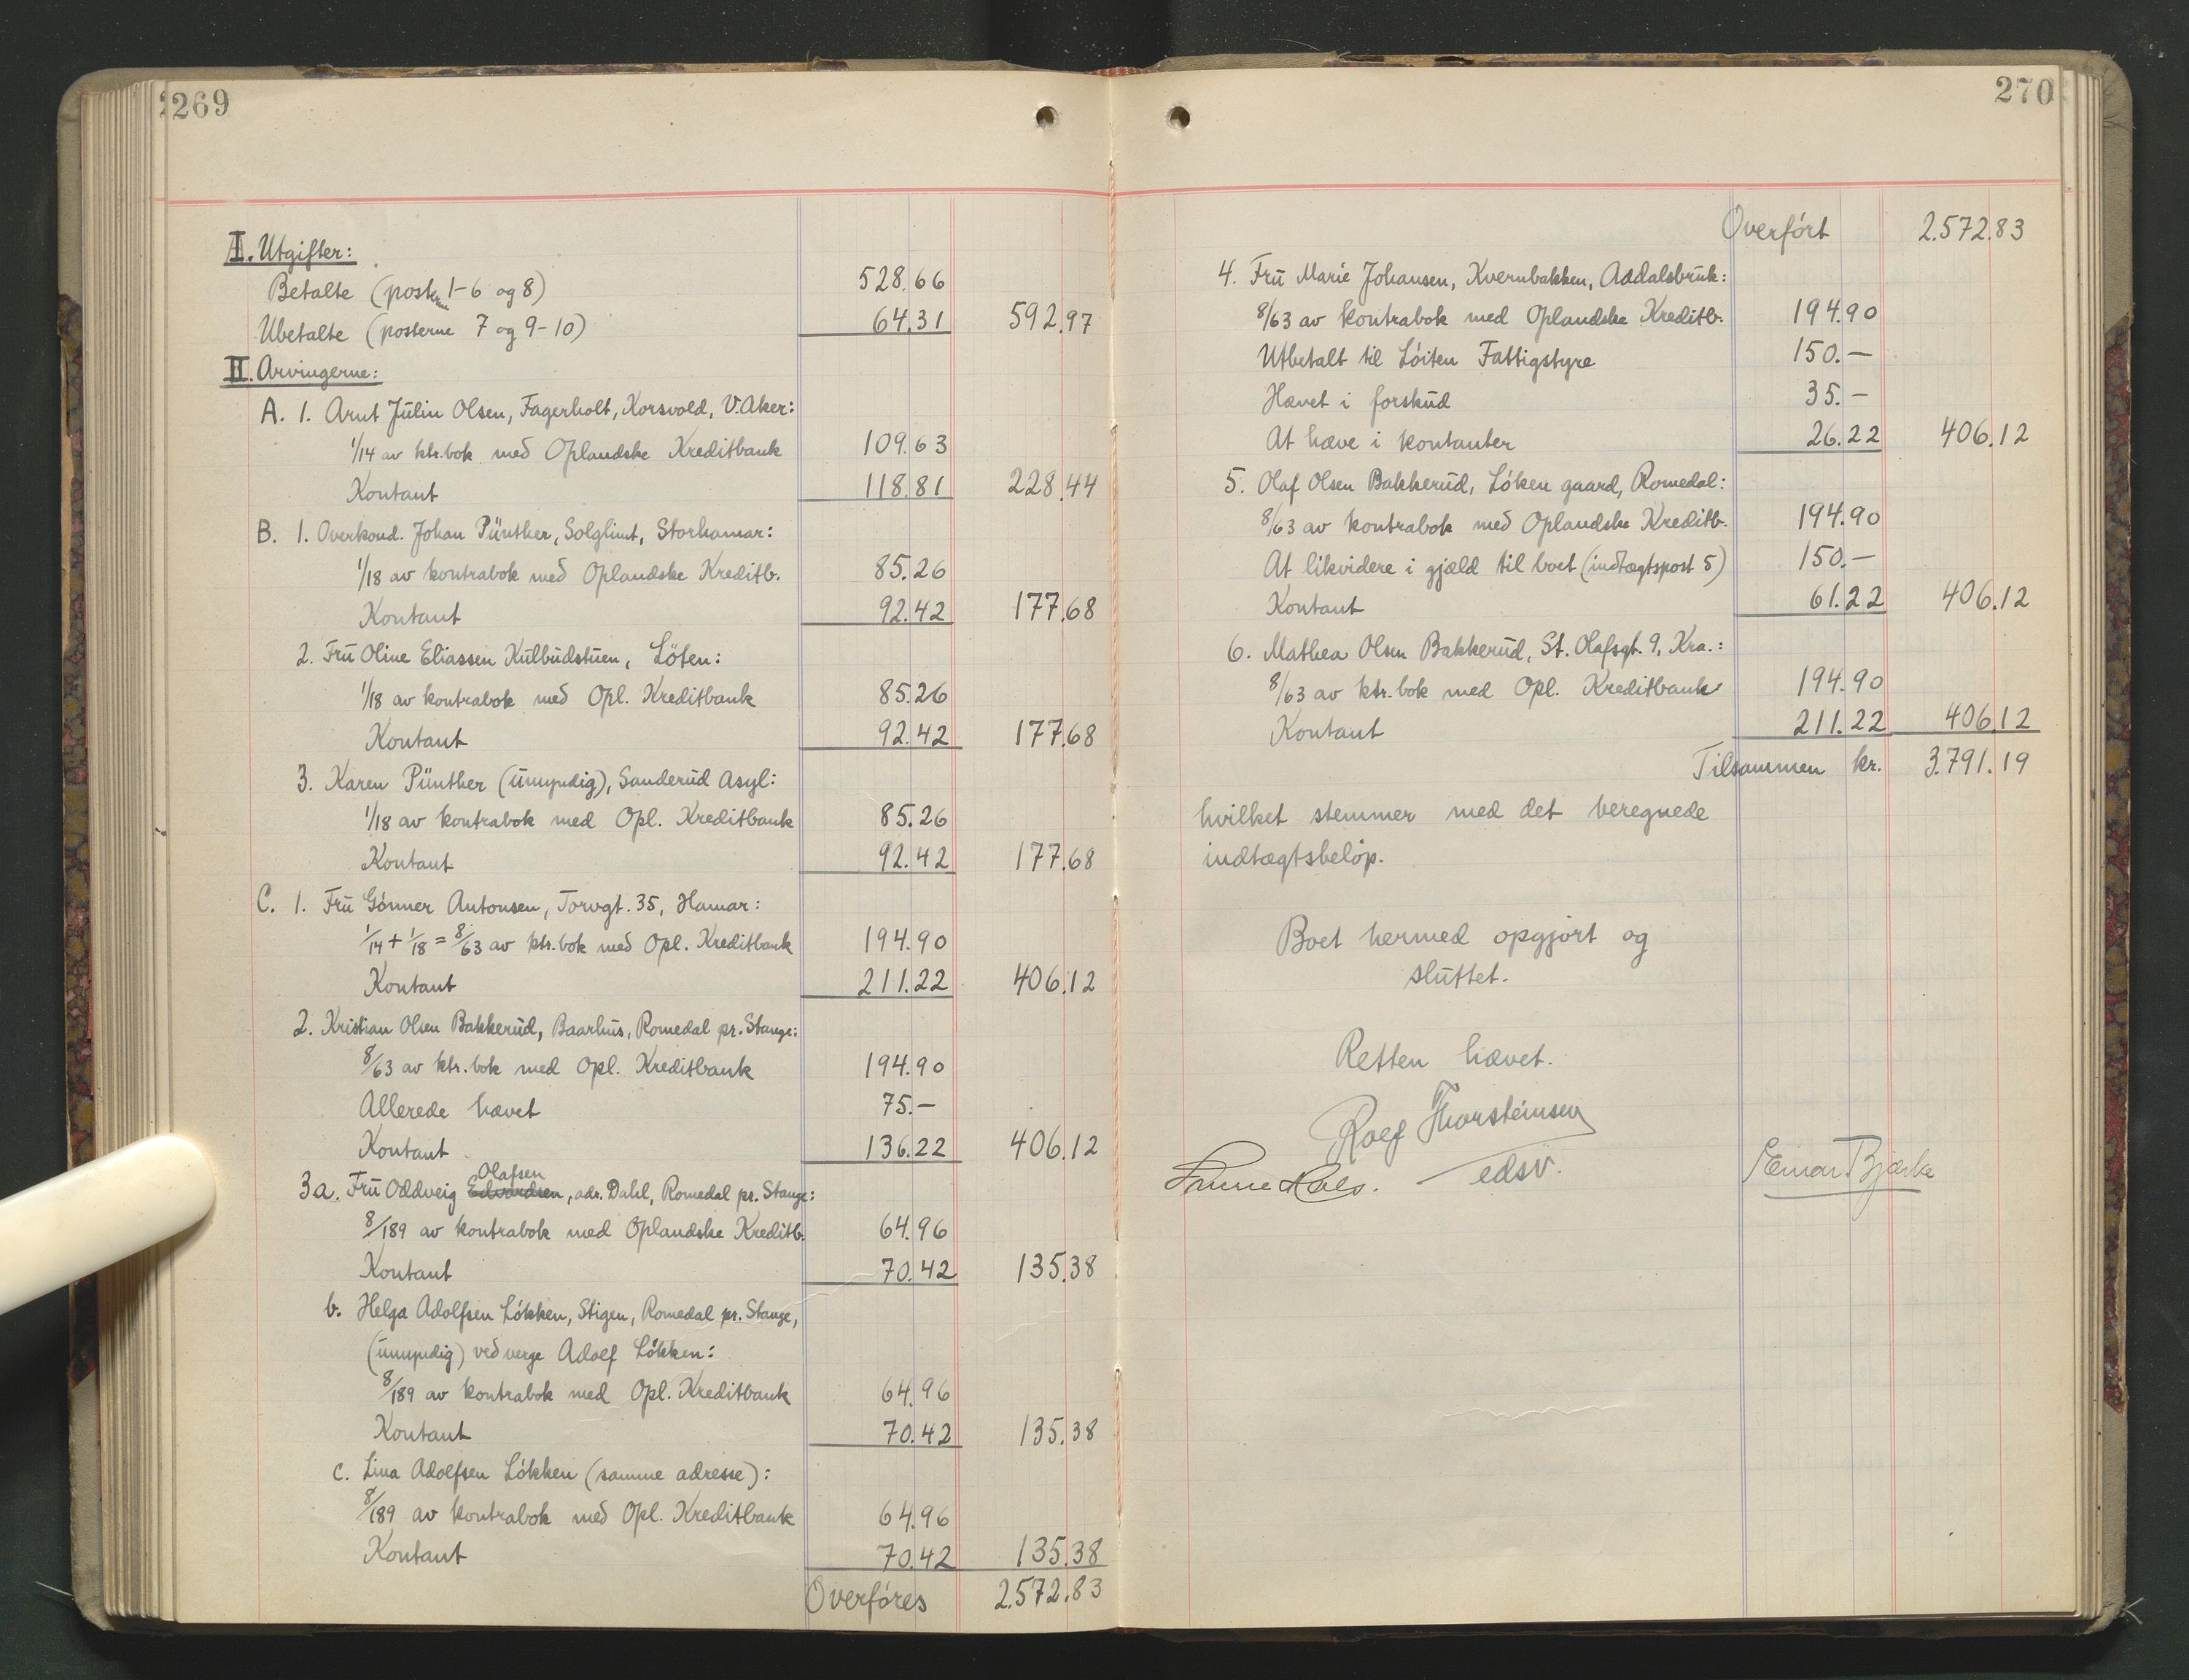 269
I. Utgifter:
Betalte (posterne 1-6 og 8) 528.66
Ubetalte (posterne 7 og 9-10) 64.31 592.97
II. Arvingerne:
A. 1. Arnt Julin Olsen, Fagerholt, Korsvold, V. Aker:
1/14 av ktr.bok med Oplandske Kreditbank 109.63
Kontant 118.81 228.44
B. 1. Overkond. Johan Pünther, Solglimt, Storhamar:
1/18 av kontrabok med Oplandske Kreditb. 85.26
Kontant 92.42 177.68
2. Fru Oline Eliassen Kulbudstuen, Löten:
1/18 av kontrabok med Opl. Kreditbank 85.26
Kontant 92.42 177.68
3. Karen Pünther (umyndig), Sanderud Asyl:
1/18 av kontrabok med Opl. Kreditbank 85.26
Kontant 92.42 177.68
C. 1. Fru Gønner Antonsen, Torvgt. 35, Hamar:
1/14 + 1/18 = 8/63 av ktr.bok med Opl. Kreditbank 194.90
Kontant 211.22 406.12
2. Kristian Olsen Bakkerud, Baarhus, Romedal pr. Stange:
8/63 av ktr.bok med Opl. Kreditbank 194.90
Allerede hævet 75.—
Kontant 136.22 406.12
3a. Fru Oddveig Edvardsen Olafsen, adr. Dahl, Romedal pr. Stange:
8/189 av kontrabok med Oplandske Kreditb. 64.96
Kontant 70.42 135.38
b. Helga Adolfsen Løkken, Stigen, Romedal pr. Stange,
(umyndig) ved verge Adolf Løkken:
8/189 av kontrabok med Opl. Kreditbank 64.96
Kontant 70.42 135.38
c. Lina Adolfsen Løkken (samme adresse):
8/189 av kontrabok med Opl. Kreditbank 64.96
Kontant 70.42 135.38
Overføres 2.572.83
270
Overført 2.572.83
4. Fru Marie Johansen, Kvernbakken, Aadalsbruk:
8/63 av kontrabok med Oplandske Kreditb. 194.90
Utbetalt til Løiten Fattigstyre 150.—
Hævet i forskud 35.—
At hæve i kontanter 26.22 406.12
5. Olaf Olsen Bakkerud, Løken gaard, Romedal:
8/63 av kontrabok med Oplandske Kreditb. 194.90
At likvidere i gjæld til boet (indtægtspost 5) 150.—
Kontant 61.22 406.12
6. Mathea Olsen Bakkerud, St. Olafsgt. 9, Kra.:
8/63 av ktr.bok med Opl. Kreditbank 194.90
Kontant 211.22 406.12
Tilsammen kr. 3.791.19
hvilket stemmer med det beregnede
indtægtsbeløp.
Boet hermed opgjort og
sluttet.
Retten hævet.
Rolf Thorsteinsen
edsv.
Einar Bjerke